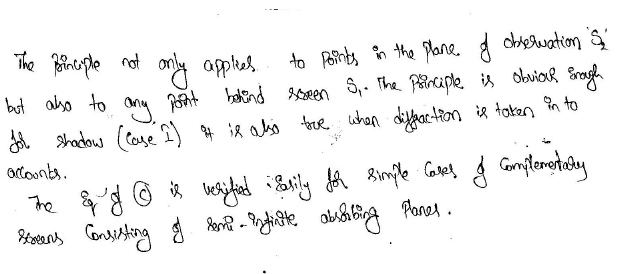 The Principle not only applies to points in the plane of observation 'S2'
but also to any point behind screen S1. The Principle is obvious enough
for shadow (Case I) it is also true when diffraction is taken in to
accounts.
The Eq'n of (C) is verified easily for simple Cases of Complementary
screens Consisting of semi-infinite absorbing Planes.